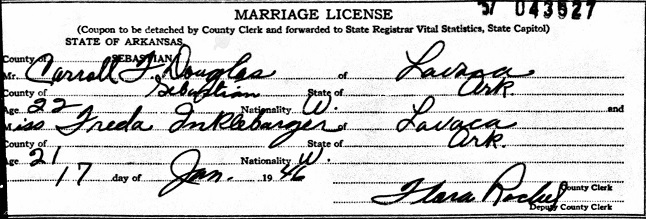 MARRIAGE LICENSE
57 043927
(Coupon to be detached by County Clerk and forwarded to State Registrar Vital Statistics, State Capitol)
STATE OF ARKANSAS,
County of SEBASTIAN
Mr. Carroll F. Douglas of Lavaca
County of Sebastian State of Ark
Age 22 Nationality W. and
Miss Freda Inklebarger of Lavaca
County of State of Ark.
Age 21 Nationality W.
17 day of Jan. 1946
Flara County Clerk
Deputy County Clerk